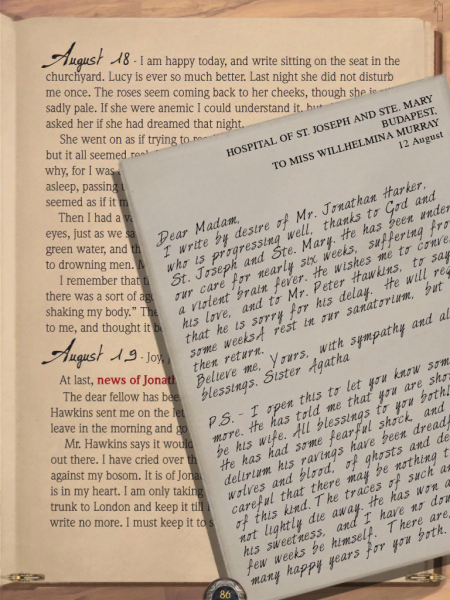 August 18 - I am happy today, and write sitting on the seat in the
churchyard. Lucy is ever so much better. Last night she did not disturb
me once. The roses seem coming back to her cheeks, though she is
sadly pale. If she were anemic I could understand it, but
asked her if she had dreamed that night.
She went on as if trying to
but it all seemed
why, for I was
asleep, passing
seemed as if it
Then I had a
eyes, just as we
green water, and
to drowning men.
I remember that
there was a sort of
shaking my body." The
to me, and thought it
August 19 - Joy,
At last, news of
The dear fellow has
Hawkins sent me on the
leave in the morning and
Mr. Hawkins says it would
out there. I have cried over
against my bosom. It is of
is in my heart. I am only taking
trunk to London and keep it till
write no more. I must keep it to
HOSPITAL OF ST. JOSEPH AND STE. MARY
BUDAPEST,
TO MISS WILLHELMINA MURRAY
12 August
Dear Madam,
I write by desire of Mr. Jonathan Harker,
who is progressing well, thanks to God and
St. Joseph and Ste. Mary. He has been under
our care for nearly six weeks, suffering
a violent brain fever. He wishes me to
his love, and to Mr. Peter Hawkins, to say
that he is sorry for his delay. He will
some weeks A rest in our sanatorium, but
then return.
Believe me, Yours, with sympathy and
blessings. Sister Agatha
P.S. - I open this to let you know
more. He has told me that you are
be his wife. All blessings to you
He has had some fearful shock and
delirium his ravings have been
wolves and blood, of ghosts and
careful that there may be nothing
of this kind. The traces of such
not lightly die away. He has won
his sweetness, and I have no
few weeks be himself. There are
many happy years for you both.
86